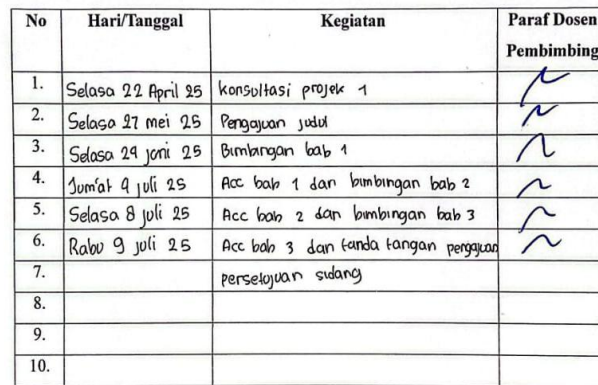 No Hari/Tanggal Kegiatan Paraf Dosen
Pembimbing
1. Selasa 22 April 25 konsultasi projek 1
2. Selasa 27 mei 25 Pengajuan judul
3. Selasa 24 juni 25 Bimbingan bab 1
4. Jum'at 4 juli 25 Acc bab 1 dan bimbingan bab 2
5. Selasa 8 juli 25 Acc bab 2 dan bimbingan bab 3
6. Rabu 9 juli 25 Acc bab 3 dan tanda tangan pengajuan
7. persetujuan sidang
8.
9.
10.